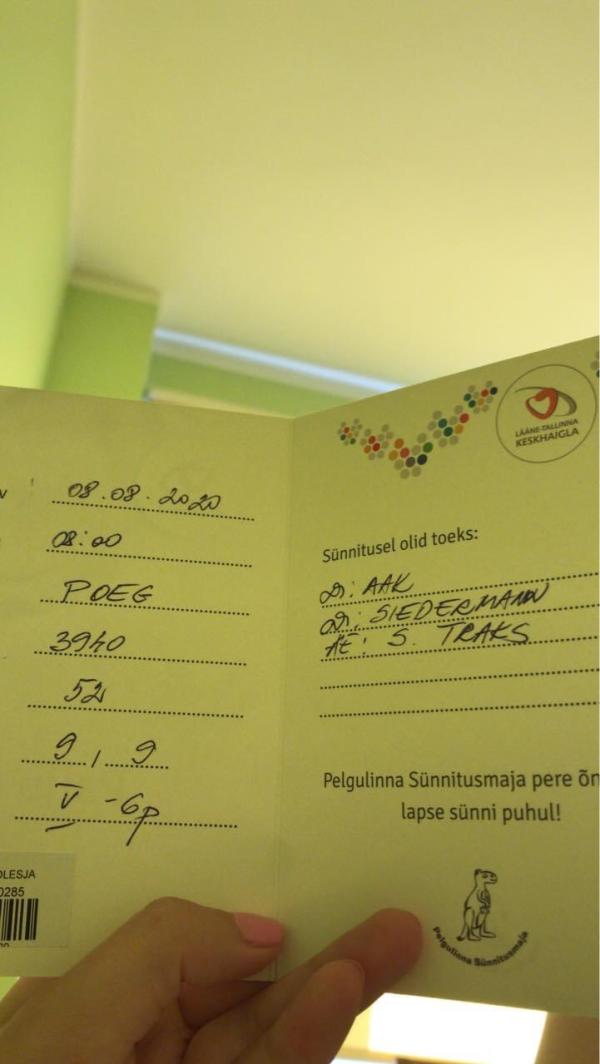 v 08.08.2020
08:00
POEG
3940
52
9, 9
V -Gp
OLESJA
0285
LÄÄNE-TALLINNA
KESKHAIGLA
Sünnitusel olid toeks:
Dr: AAK
Dr: SIEDERMANN
ÄE: S. TRAKS
Pelgulinna Sünnitusmaja pere õn
lapse sünni puhul!
Pelgulinna Sünnitusmaja